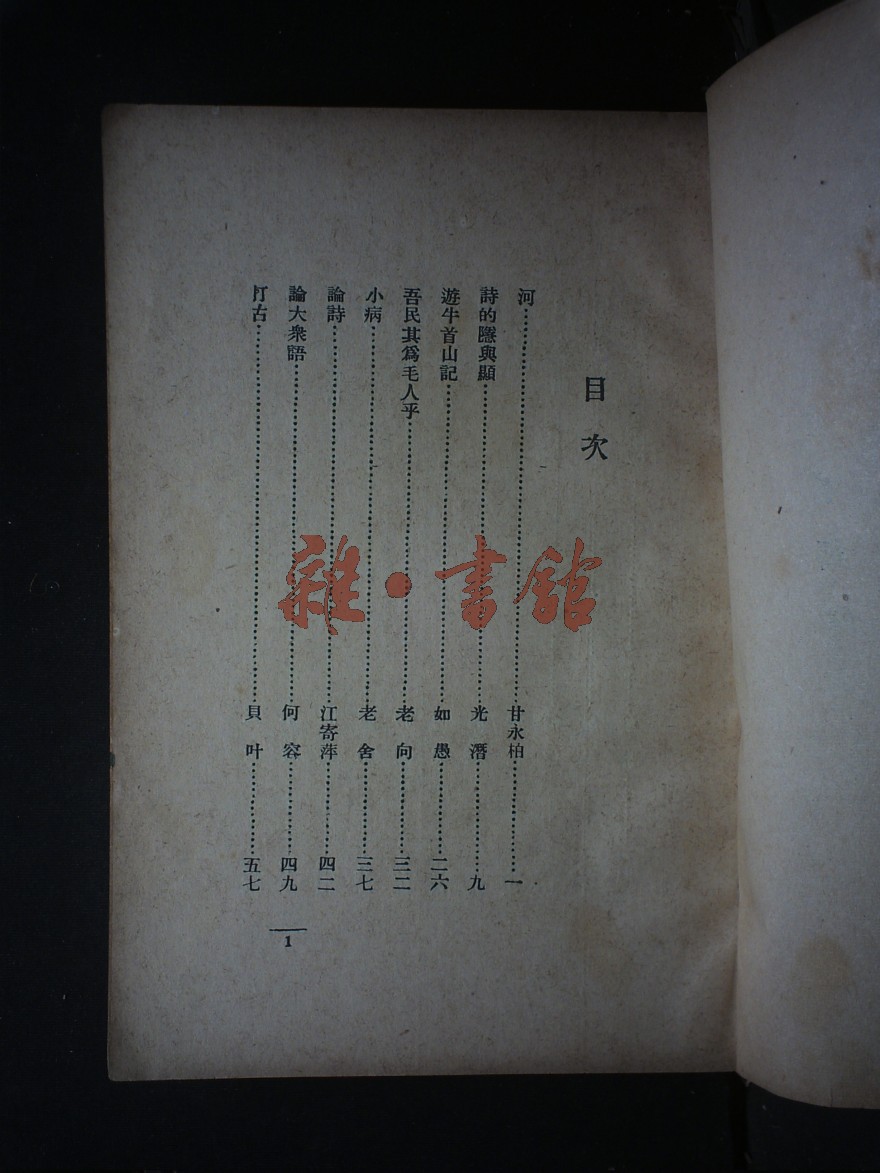 目次
河……甘永柏……一
詩的隱與顯……光潛……九
遊牛首山記……如愚……二六
吾民其爲毛人乎……老向……三二
小病……老舍……三七
論詩……江寄萍……四二
論大衆語……何容……四九
打古……貝叶……五七
1
雜·書館